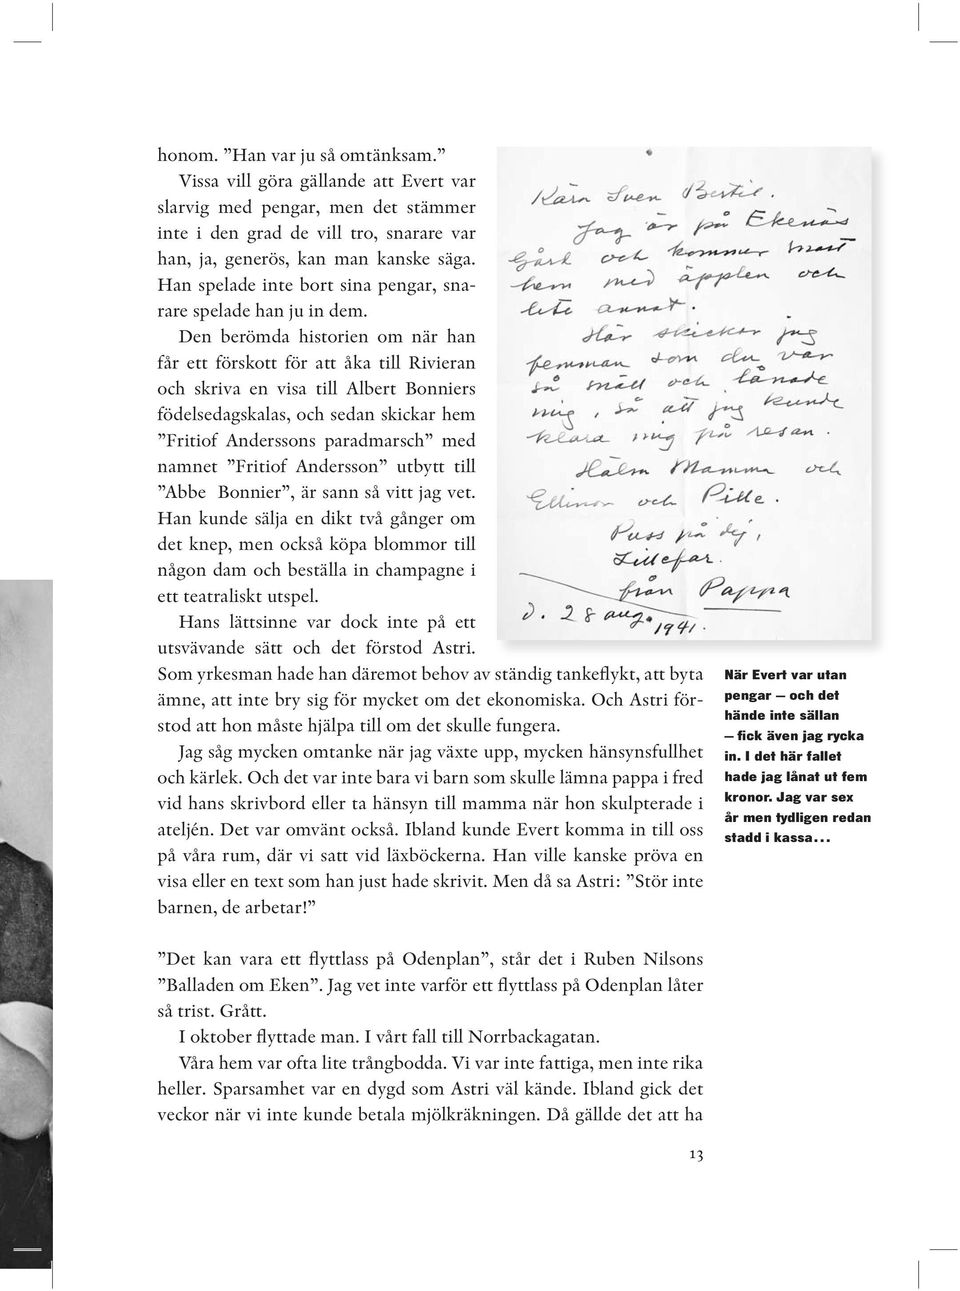 honom. ”Han var ju så omtänksam.”
Vissa vill göra gällande att Evert var
slarvig med pengar, men det stämmer
inte i den grad de vill tro, snarare var
han, ja, generös, kan man kanske säga.
Han spelade inte bort sina pengar, sna-
rare spelade han ju in dem.
Den berömda historien om när han
får ett förskott för att åka till Rivieran
och skriva en visa till Albert Bonniers
födelsedagskalas, och sedan skickar hem
”Fritiof Anderssons paradmarsch” med
namnet ”Fritiof Andersson” utbytt till
”Abbe Bonnier”, är sann så vitt jag vet.
Han kunde sälja en dikt två gånger om
det knep, men också köpa blommor till
någon dam och beställa in champagne i
ett teatraliskt utspel.
Hans lättsinne var dock inte på ett
utsvävande sätt och det förstod Astri.
Som yrkesman hade han däremot behov av ständig tankeflykt, att byta
ämne, att inte bry sig för mycket om det ekonomiska. Och Astri för-
stod att hon måste hjälpa till om det skulle fungera.
Jag såg mycken omtanke när jag växte upp, mycken hänsynsfullhet
och kärlek. Och det var inte bara vi barn som skulle lämna pappa i fred
vid hans skrivbord eller ta hänsyn till mamma när hon skulpterade i
ateljén. Det var omvänt också. Ibland kunde Evert komma in till oss
på våra rum, där vi satt vid läxböckerna. Han ville kanske pröva en
visa eller en text som han just hade skrivit. Men då sa Astri: ”Stör inte
barnen, de arbetar!”
Kära Sven Bertil.
Jag är på Ekenäs
Gård och kommer snart
hem med äpplen och
lite annat.
Här skickar jag
femman som du var
så snäll och lånade
mig, så att jag kunde
klara mig på resan.
Hälsa Mamma och
Ellinor och Pille.
Puss på dej,
Lillefar.
från Pappa
d. 28 aug. 1941.
När Evert var utan
pengar – och det
hände inte sällan
– fick även jag rycka
in. I det här fallet
hade jag lånat ut fem
kronor. Jag var sex
år men tydligen redan
stadd i kassa...
”Det kan vara ett flyttlass på Odenplan”, står det i Ruben Nilsons
”Balladen om Eken”. Jag vet inte varför ett flyttlass på Odenplan låter
så trist. Grått.
I oktober flyttade man. I vårt fall till Norrbackagatan.
Våra hem var ofta lite trångbodda. Vi var inte fattiga, men inte rika
heller. Sparsamhet var en dygd som Astri väl kände. Ibland gick det
veckor när vi inte kunde betala mjölkräkningen. Då gällde det att ha
13